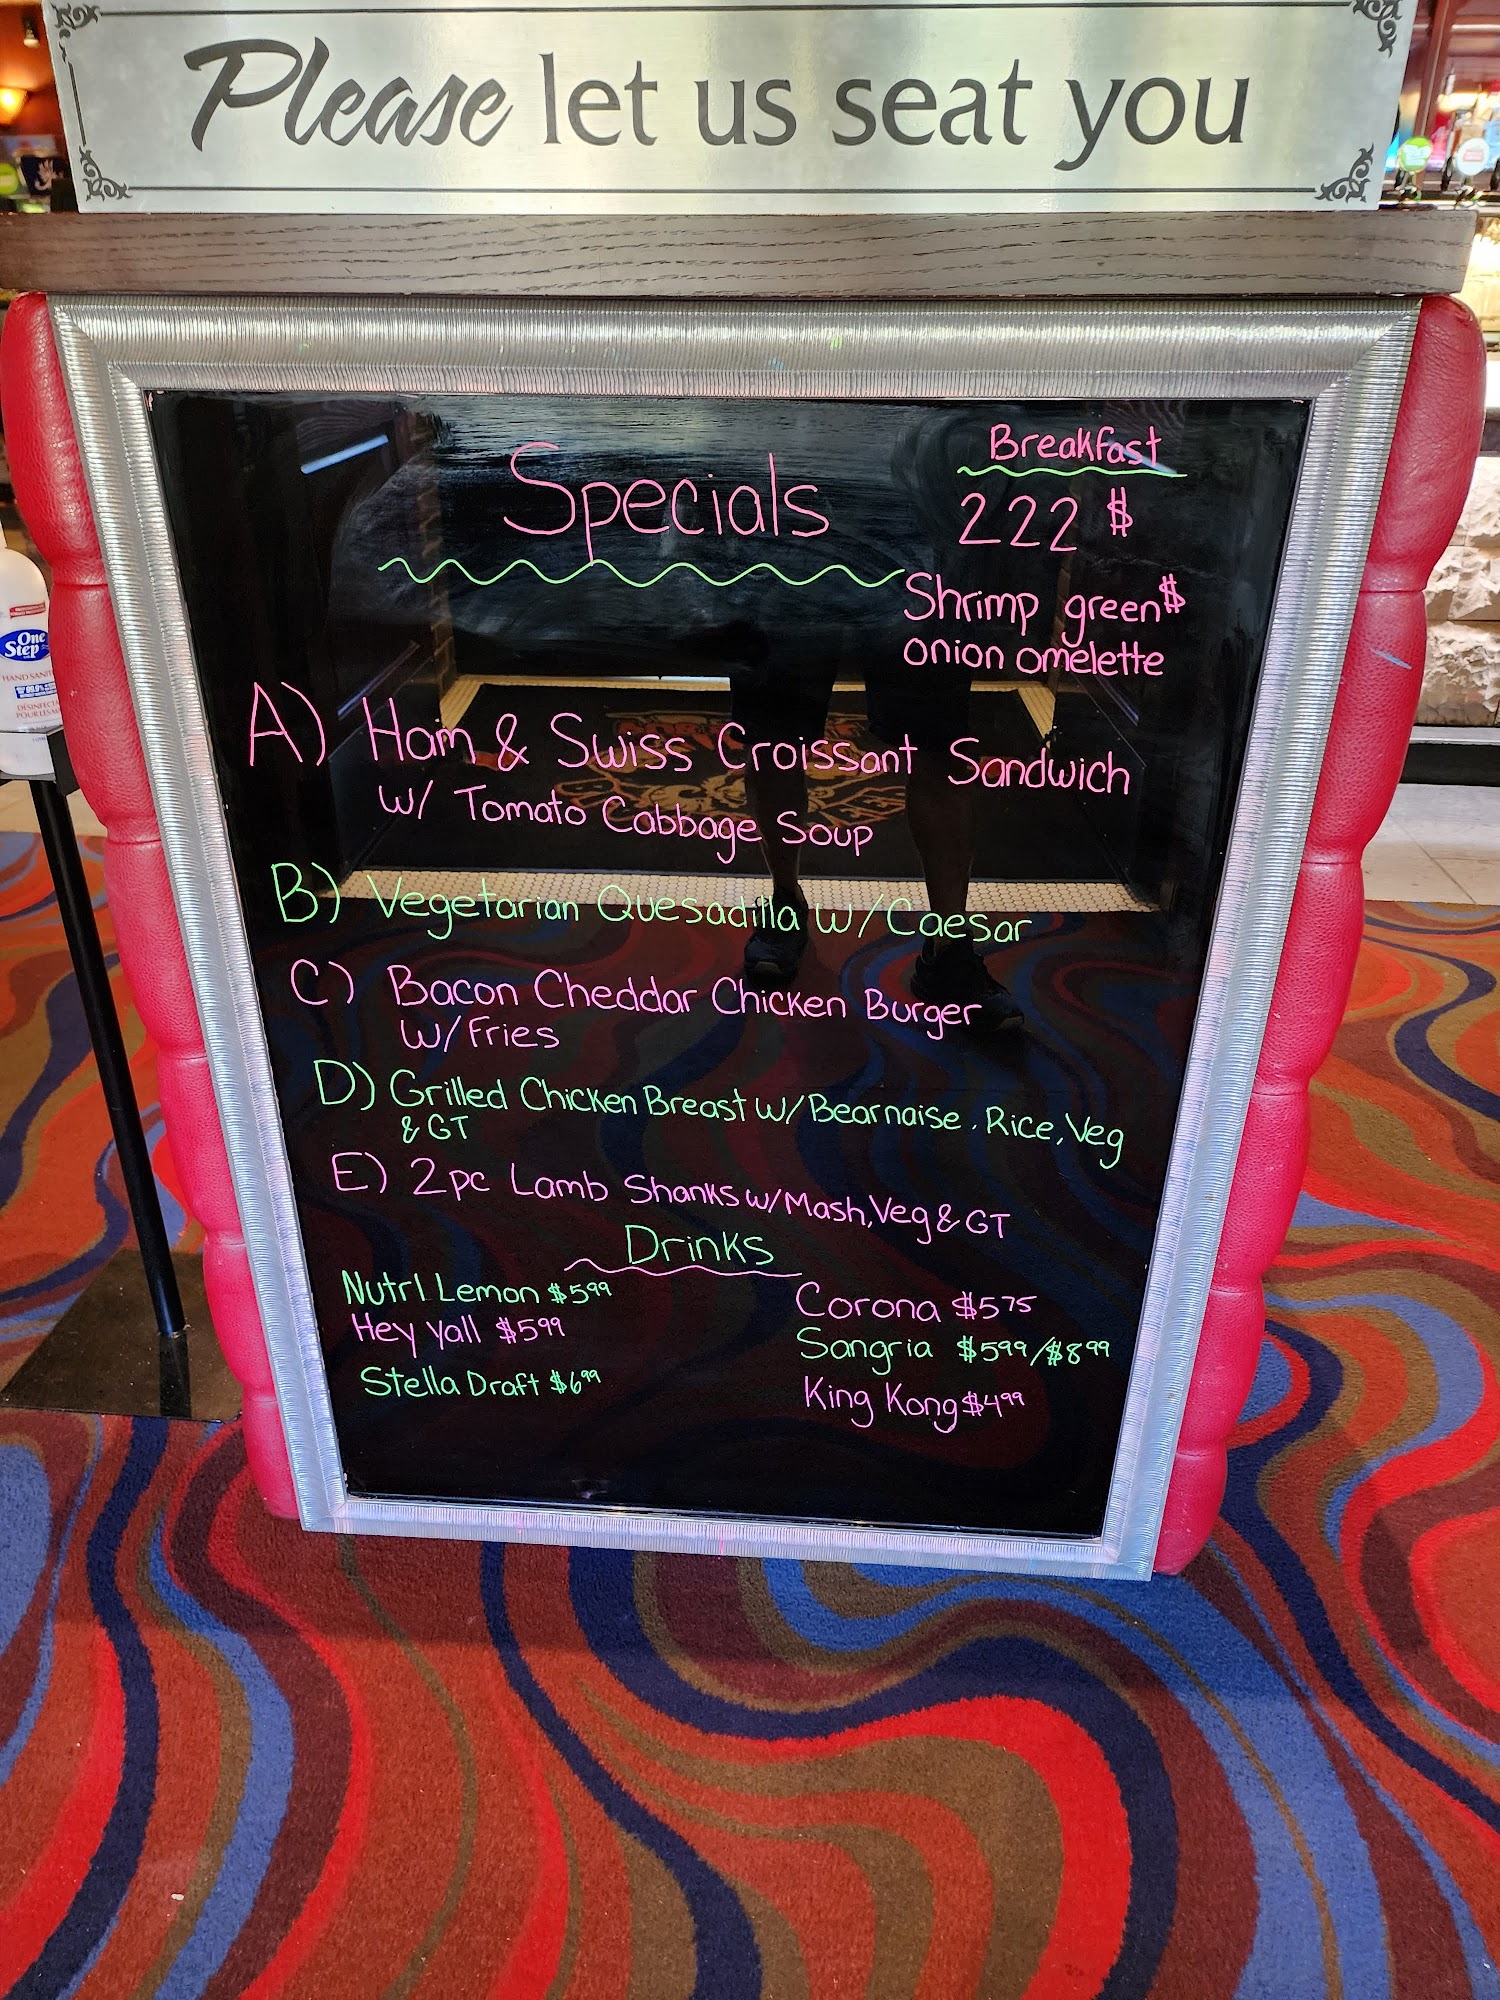 Please let us seat you
Breakfast
Specials
222 $
Shrimp green $
onion omelette
A) Ham & Swiss Croissant Sandwich
w/ Tomato Cabbage Soup
B) Vegetarian Quesadilla w/ Caesar
C) Bacon Cheddar Chicken Burger
w/ Fries
D) Grilled Chicken Breast w/ Bearnaise, Rice, Veg
& GT
E) 2pc Lamb Shanks w/ Mash, Veg & GT
Drinks
Nutrl Lemon $5.99
Hey Yall $5.99
Stella Draft $6.99
Corona $5.75
Sangria $5.99/$8.99
King Kong $4.99
One
Step